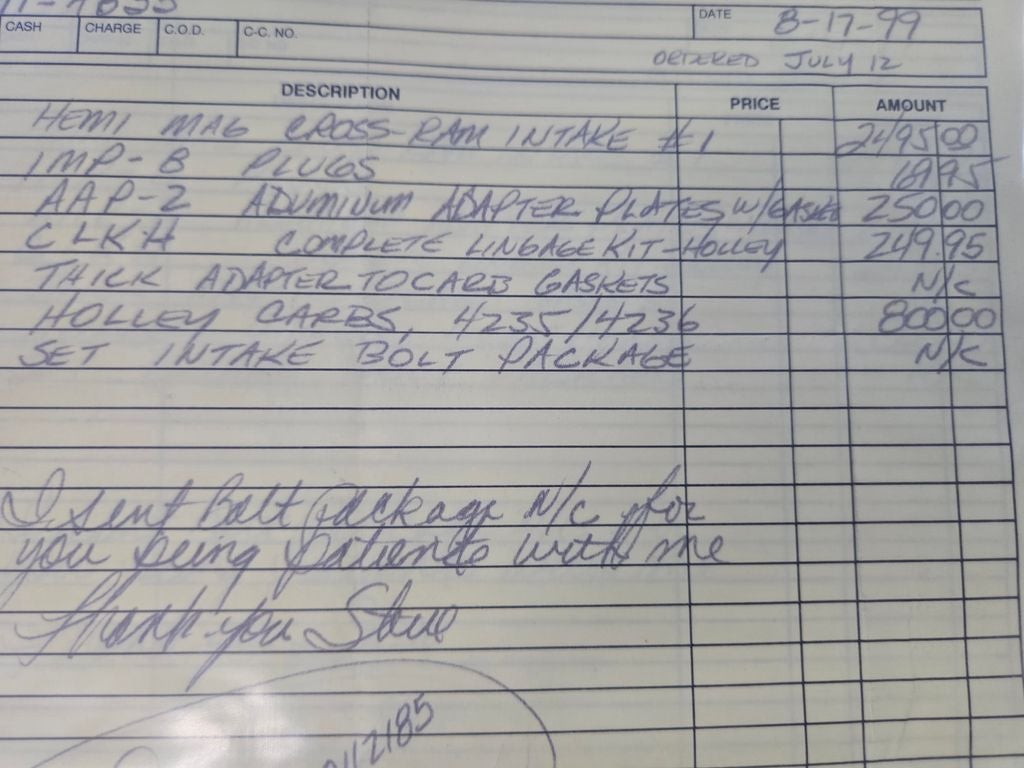 CASH CHARGE C.O.D. C-C. NO. DATE 8-17-99
ORDERED JULY 12
DESCRIPTION PRICE AMOUNT
HEMI MAG CROSS-RAM INTAKE #1 2495 00
IMP-8 PLUGS 69 95
AAP-2 ADUMIUUM ADAPTER PLATES W/GASKE 250 00
CLKH COMPLETE LINGAGE KIT-HOLLEY 249.95
THICK ADAPTER TO CARB GASKETS N/C
HOLLEY CARBS, 4235/4236 800 00
SET INTAKE BOLT PACKAGE N/C
I sent Bolt package N/c for
you being patients with me
Thank-you Steve
112185